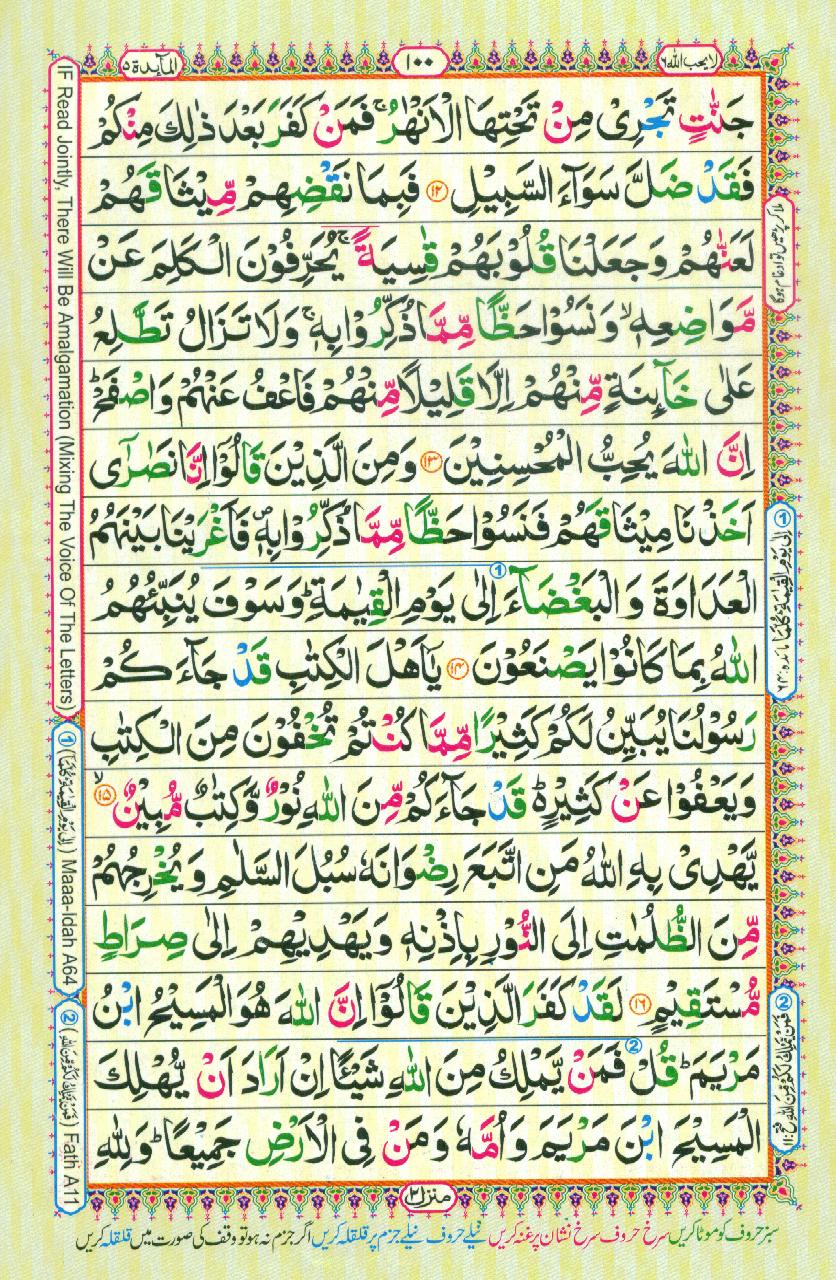 لا یحب اللہ ۶
۱۰۰
المآىِٕدة ۵
جَنّٰتٍ تَجْرِیْ مِنْ تَحْتِهَا الْاَنْهٰرُ ۚ فَمَنْ كَفَرَ بَعْدَ ذٰلِكَ مِنْكُمْ
فَقَدْ ضَلَّ سَوَآءَ السَّبِیْلِ ۝۱۲ فَبِمَا نَقْضِهِمْ مِّیْثَاقَهُمْ
لَعَنّٰهُمْ وَ جَعَلْنَا قُلُوْبَهُمْ قٰسِیَةً ۚ یُحَرِّفُوْنَ الْكَلِمَ عَنْ
مَّوَاضِعِهٖ ۙ وَ نَسُوْا حَظًّا مِّمَّا ذُكِّرُوْا بِهٖ ۚ وَ لَا تَزَالُ تَطَّلِعُ
عَلٰی خَآىِٕنَةٍ مِّنْهُمْ اِلَّا قَلِیْلًا مِّنْهُمْ فَاعْفُ عَنْهُمْ وَ اصْفَحْ ؕ
اِنَّ اللّٰهَ یُحِبُّ الْمُحْسِنِیْنَ ۝۱۳ وَ مِنَ الَّذِیْنَ قَالُوْۤا اِنَّا نَصٰرٰۤی
اَخَذْنَا مِیْثَاقَهُمْ فَنَسُوْا حَظًّا مِّمَّا ذُكِّرُوْا بِهٖ ۪ فَاَغْرَیْنَا بَیْنَهُمُ
الْعَدَاوَةَ وَ الْبَغْضَآءَ اِلٰی یَوْمِ الْقِیٰمَةِ ؕ وَ سَوْفَ یُنَبِّئُهُمُ
اللّٰهُ بِمَا كَانُوْا یَصْنَعُوْنَ ۝۱۴ یٰۤاَهْلَ الْكِتٰبِ قَدْ جَآءَكُمْ
رَسُوْلُنَا یُبَیِّنُ لَكُمْ كَثِیْرًا مِّمَّا كُنْتُمْ تُخْفُوْنَ مِنَ الْكِتٰبِ
وَ یَعْفُوْا عَنْ كَثِیْرٍ ؕ۬ قَدْ جَآءَكُمْ مِّنَ اللّٰهِ نُوْرٌ وَّ كِتٰبٌ مُّبِیْنٌ ۝۱۵ ۙ
یَّهْدِیْ بِهِ اللّٰهُ مَنِ اتَّبَعَ رِضْوَانَهٗ سُبُلَ السَّلٰمِ وَ یُخْرِجُهُمْ
مِّنَ الظُّلُمٰتِ اِلَی النُّوْرِ بِاِذْنِهٖ وَ یَهْدِیْهِمْ اِلٰی صِرَاطٍ
مُّسْتَقِیْمٍ ۝۱۶ لَقَدْ كَفَرَ الَّذِیْنَ قَالُوْۤا اِنَّ اللّٰهَ هُوَ الْمَسِیْحُ ابْنُ
مَرْیَمَ ؕ قُلْ فَمَنْ یَّمْلِكُ مِنَ اللّٰهِ شَیْـًٔا اِنْ اَرَادَ اَنْ یُّهْلِكَ
الْمَسِیْحَ ابْنَ مَرْیَمَ وَ اُمَّهٗ وَ مَنْ فِی الْاَرْضِ جَمِیْعًا ؕ وَ لِلّٰهِ
منزل ۲
سبز حروف کو موٹا کریں سرخ حروف سرخ نشان پر غنہ کریں نیلے حروف نیلے جزم پر قلقلہ کریں اگر جزم نہ ہو تو وقف کی صورت میں قلقلہ کریں
IF Read Jointly, There Will Be Amalgamation (Mixing The Voice Of The Letters)
① (اِلٰی یَوْمِ الْقِیٰمَةِ کُلَّمَا) Maaa-Idah A64
② (فَمَنْ یَّمْلِكُ لَكُمْ مِّنَ اللّٰهِ) Fath A11
① اِلٰی یَوْمِ الْقِیٰمَةِ کُلَّمَا مائدہ: ۶۴
② فَمَنْ یَّمْلِكُ لَكُمْ مِّنَ اللّٰهِ فتح: ۱۱